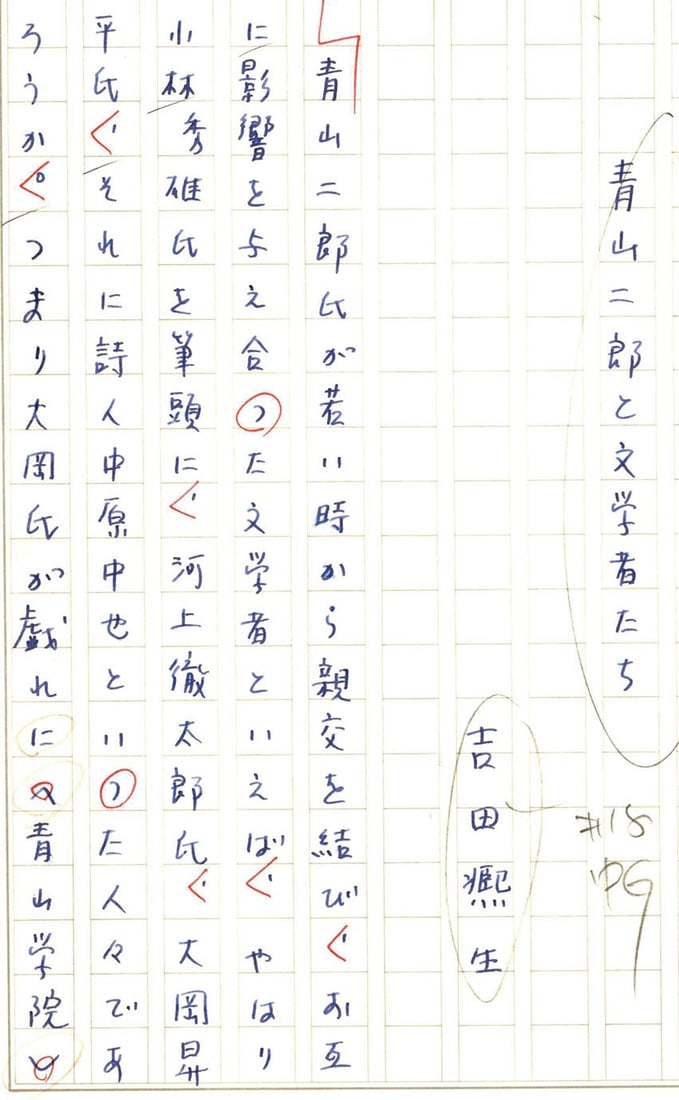 青山二郎と文学者たち
#18
吉田凞生
青山二郎氏が若い時から親交を結び、お互
に影響を与え合った文学者といえば、やはり
小林秀雄氏を筆頭に、河上徹太郎氏、大岡昇
平氏、それに詩人中原中也といった人々であ
ろうか。つまり大岡氏が戯れに〝青山学院〟